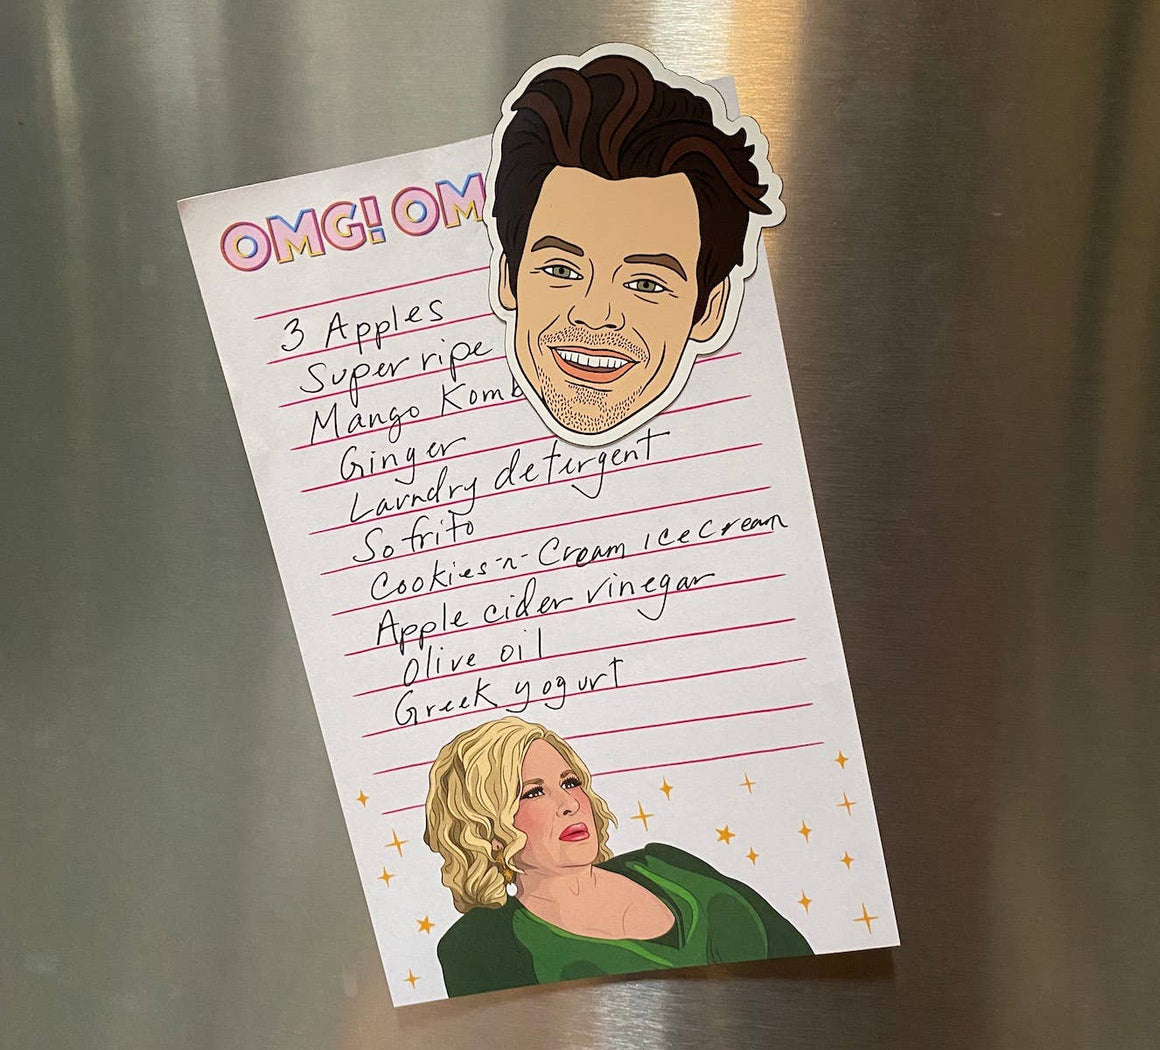 OMG! OM
3 Apples
Super ripe
Mango Komb
Ginger
Laundry detergent
Sofrito
Cookies-n-Cream ice cream
Apple cider vinegar
Olive oil
Greek yogurt